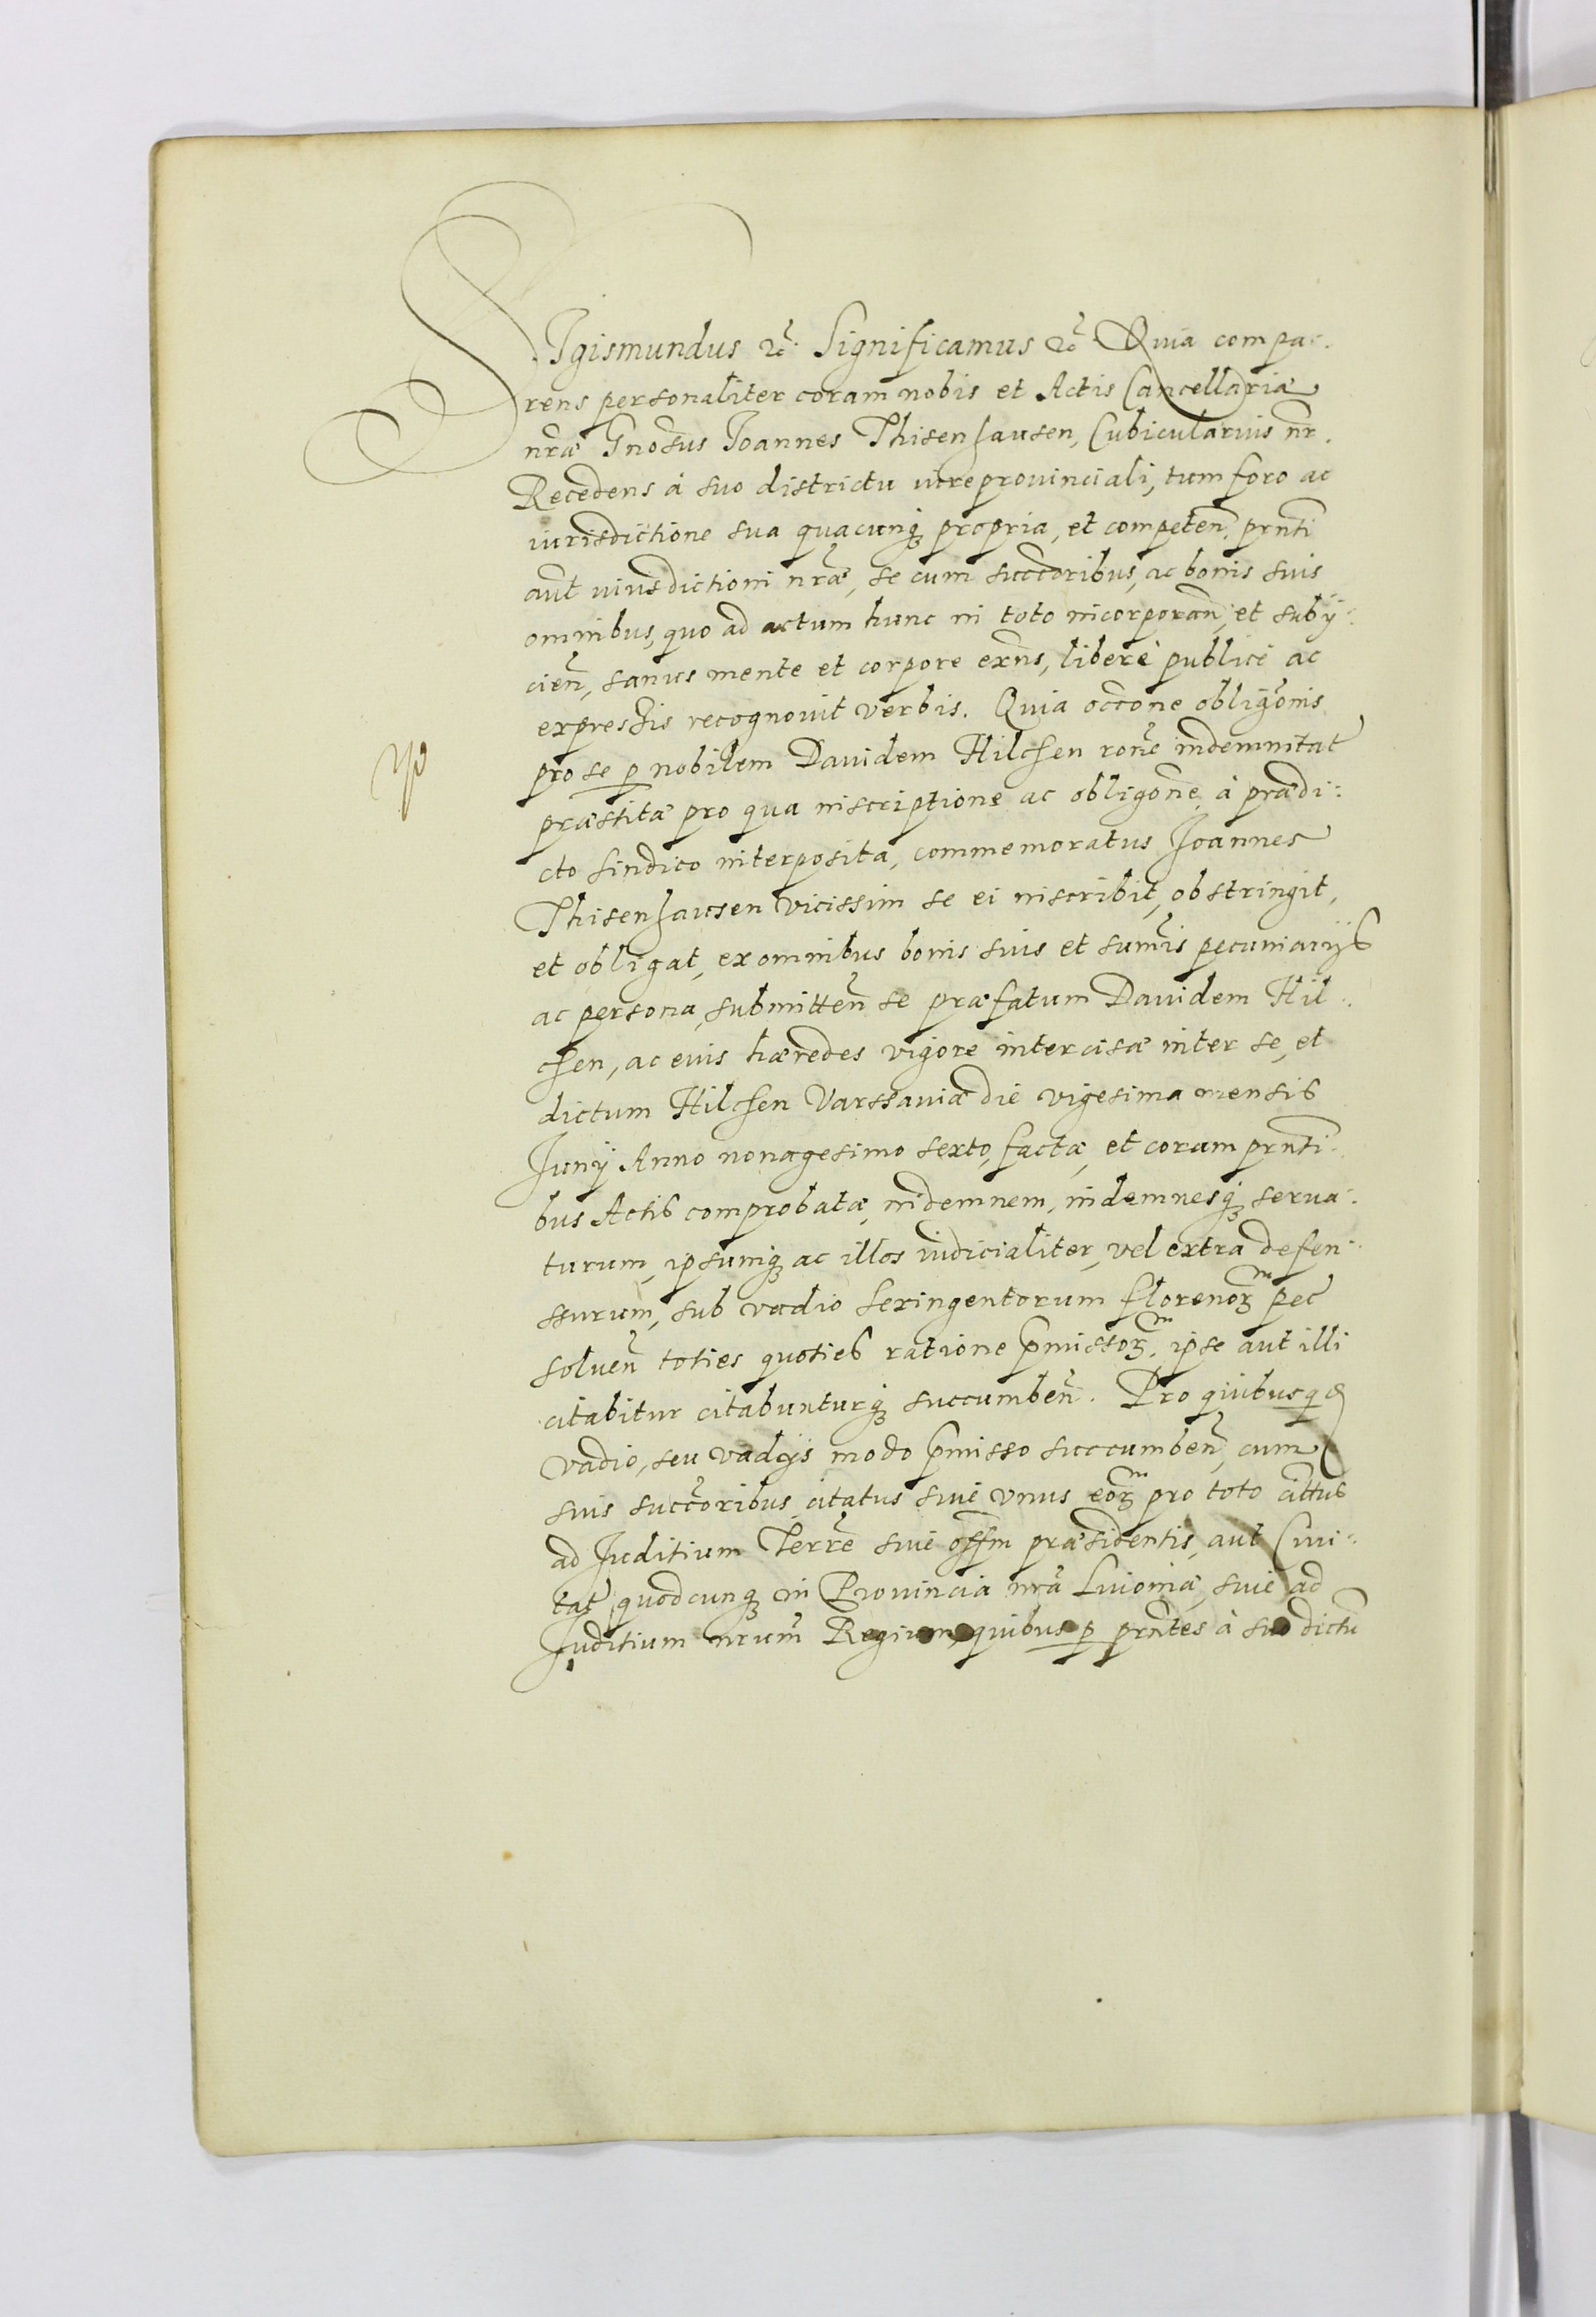 SIgismundus etc. Significamus etc. Quia compa:
rens personaliter coram nobis et Actis Cancellariæ
nr̃æ Gnosus Joannes Thisenhausen, Cubicularius nr̃.
Recedens à suo districtu iure provinciali, tum foro ac
iurisdictione sua quacunq; propria, et competen̄. prn̄ti
aūt iurisdictioni nr̃æ, se cum succōribus, ac bonis suis
omnibus, quo ad actum hunc in toto incorporan̄, et subij:
cien̄, sanus mente et corpore exn̄s, liberè publicè ac
expressis recognovit verbis. Quia occōne obligōnis
pro se p nobilem Davidem Hilchen rōne indemnitat̃
præstitæ pro qua inscriptione ac obligōne à prædi:
cto sindico interposita, commemoratus Joannes
Thisenhausen vicissim se ei inscribit, obstringit,
et obligat, ex omnibus bonis suis et sum̄is pecuniarijs
ac persona, submitten̄ se præfatum Davidem Hil:
chen, ac eius hæredes vigore intercisæ inter se, et
dictum Hilchen Varssaviæ die vigesima mensis
Junij Anno nonagesimo sexto, factæ, et coram prn̄ti:
bus Actis comprobatæ, indemnem, indemnesq; serva:
turum, ipsumq; ac illos iudicialiter, vel extra defen:
ssurum, sub vadio sexingentorum florenoꝝ pec̃
solven̄ toties quoties ratione p̄missoꝝ. ipse aut illi
citabitur citabunturq; succumben̄. Pro quibus qd
vadio, seu vadijs modo p̄misso succumben̄, cum
suis succōribus citatus sive unus eoꝝ pro toto cittus
ad Juditium Terrẽ sive offm præsidentis, aut Civi:
tat̃ quodcunq; in Provincia nr̃a Livoniæ, sive ad
Juditium nrum̄ Regium, quibus p prn̄tes à suo dictu